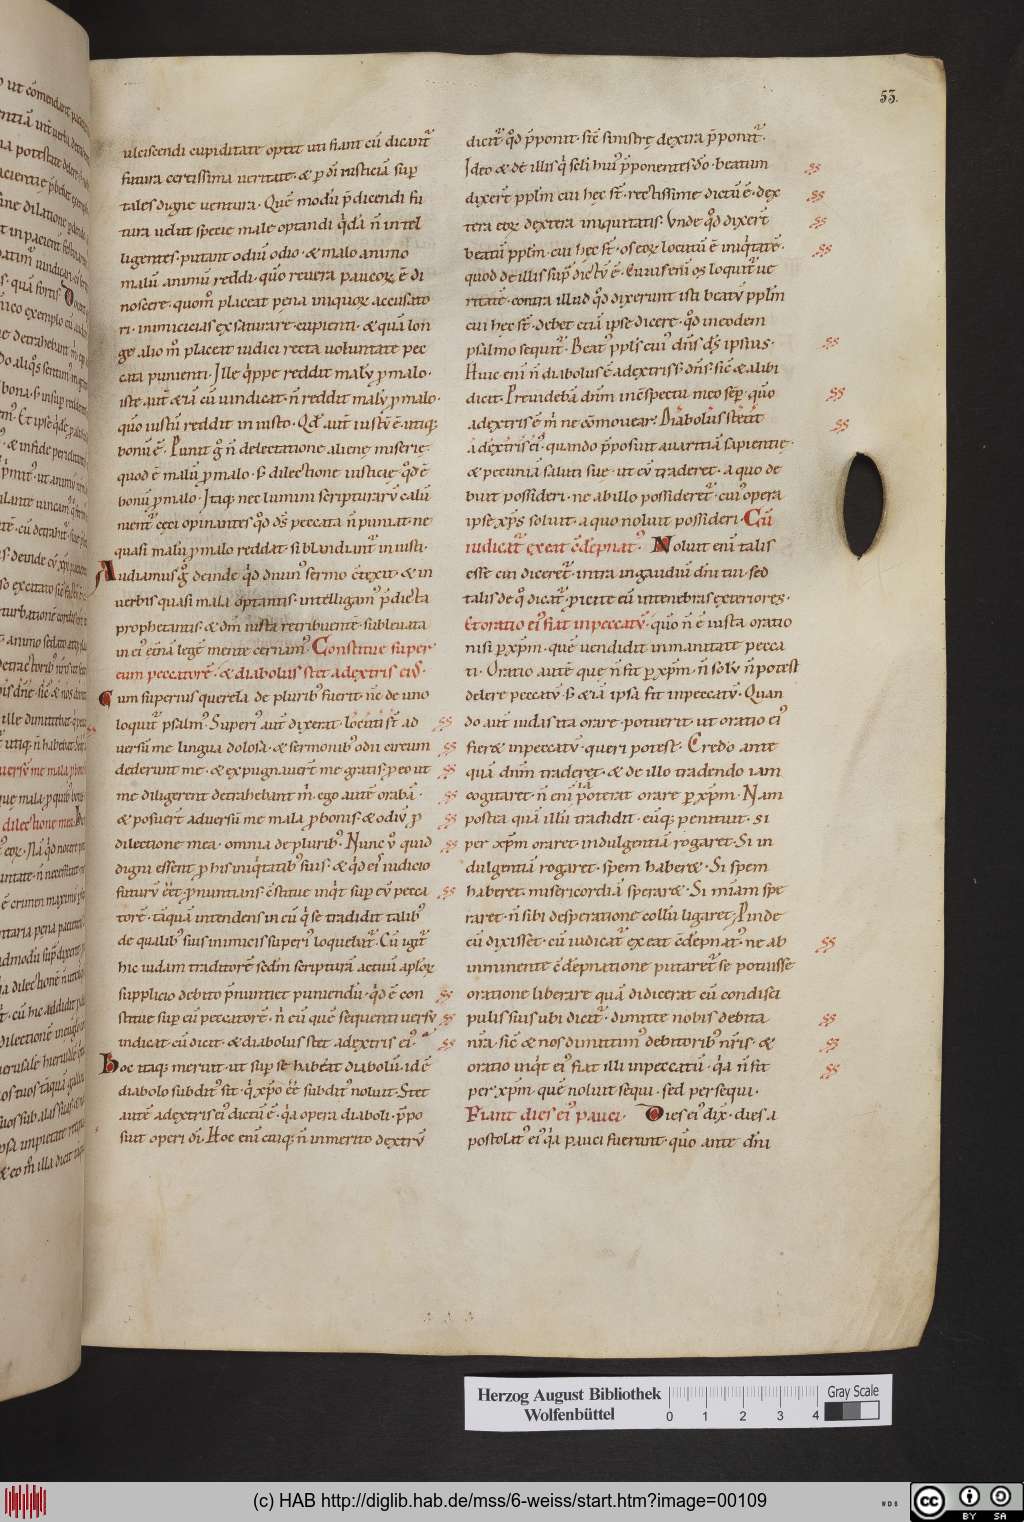 53.
ulciscendi cupiditate optet uti fiant cū dicant᷑
futura certissima ueritate · & p dī iusticiā sup
tales digne uentura · Quē modū p̄dicendi fu
tura uelut specie male optandi q̇dā n̄ intel
ligentes · putant odiū odio · & malo animo
malū animū reddi · quō reuera paucoꝝ ē di
noscere · quom̊ placeat pena iniquoꝝ accusato
ri · inimicicias exsaturare cupienti · & quā lon
ge alio m̊ placeat iudici recta uoluntate pec
cata punienti · Ille q̇ppe reddit malū p malo ·
iste aut̄ &iā cū uindicat · n̄ reddit malū p malo ·
quō iustū reddit in iusto · Qd̄ aut̄ iustū ē · utiq;
bonū ē · Punit g̊ n̄ delectatione alienę miserię ·
quod ē malū p malo · s; dilectione iusticię qd̊ ē
bonū p malo · Itaq; nec lumini scripturarū calū
nient᷑ cęci opinantes qd̊ d̄s peccata n̄ puniat · ne
quasi malū p malo reddat · si blandiunt᷑ iniusti ·
Audiamus g̊ deinde q̇d diuin᷒ sermo c̄texit · & in
uerbis quasi mala optantis · intelligam᷒ p̄dicta
prophetantis · & dm̄ iusta retribuente · subleuata
in ei᷒ et̄nā legē mente cernam᷒ Constitue super
eum peccatorē · & diabolus stet adextris ei᷒ ·
Cum superius querela de plurib᷒ fuerit · nc̄ de uno
loquit᷑ psalm᷒ Superi᷒ aut̄ dixerat · locuti s̄t ad
uersū me lingua dolosa · & sermonib᷒ odii circum
dederunt me · & expugnauer̄t me gratis · p eo ut
me diligerent detrahebant m̊ · ego aut̄ orabā ·
& posuer̄t aduersū me mala p bonis · & odiū p
dilectione mea · omnia de plurib᷒ · Nunc ū quid
digni essent p his iniq̇tatib᷒ suis · & q̇d ei᷒ iudicio
futurū ēēt · pnuntians · c̄stitue inq̇t sup eū pecca
torē · tāquā intendens in eū q̇ se tradidit talib᷒
de qualib᷒ suis inimicis superi᷒ loquebat᷑ · Cū igit᷑
hic iudam traditorē sc̄dm scripturā actuū aplōꝝ
supplicio debito p̄nuntiet puniendū · q̇d ē con
stitue sup eū peccatorē · n̄ eū quē sequenti uersu
indicat cū dicit · & diabolus stet adextris ei᷒ ·
Hoc itaq; meruit · ut sup se habeat diabolū · id ē
diabolo subdit᷒ sit · q̇ xpō ēē subdit᷒ noluit · Stet
autē adextris ei᷒ dictū ē · q̇a opera diaboli · p̄po
suit operi dī · Hoc enī cuiq; n̄ inmerito dextrū
dicit᷑ qd̊ p̄ponit · sic̄ sinistrę dextra p̄ponit᷑ ·
Ideo & de illis q̇ sc̄li hui᷒ p̄ponentes dō · beatum
dixer̄t pplm cui hęc s̄t · rectissime dictū ē · dex
tera eoꝝ dextera iniquitatis · Unde qd̊ dixer̄t
beatū pplm · cui hęc s̄t · os eoꝝ locutū ē iniq̇tatē ·
quod de illis sup̄ dictū ē · Cuius enī os loquit᷑ ue
ritatē · contra illud qd̊ dixerunt isti beatū pplm
cui hęc s̄t · debet etiā ipse dicere · qd̊ in eodem
psalmo sequit᷑ · Beat᷒ ppls cui᷒ dn̄s d̄s ipsius ·
Huic enī n̄ diabolus ē adextris s; dn̄s · sic̄ & alibi
dicit · Prouidebā dnm̄ in c̄spectu meo sep̄ · quō
adextris ē m̊ ne cōmouear · Diabolus stetit
adextris ei᷒ · quando p̄posuit auaritiā sapientię ·
& pecuniā saluti suę · ut eū traderet · a quo de
buit possideri · ne ab illo possideret᷑ · cui᷒ opera
ipse xp̄s soluit · a quo noluit possideri · Cū
iudicat᷑ exeat c̄dēpnat᷒ · Noluit enī talis
esse cui diceret᷑ · intra in gaudiū dn̄i tui · sed
talis de q̊ dicat᷑ · proicite eū intenebras exteriores ·
Et oratio ei᷒ fiat in peccatū · quō n̄ ē iusta oratio
nisi p xpm̄ · quē uendidit inmanitate pecca
ti · Oratio autē quę n̄ fit p xpm̄ · n̄ solū n̄ potest
delere peccatū · s; &iā ipsa fit in peccatū · Quan
do aut̄ iudas ita orare potuerit · ut oratio ei᷒
fier& inpeccatū · queri potest · Credo ante
quā dnm̄ trader& · & de illo tradendo iam
cogitaret · n̄ enī poterat orare p xpm̄ · Nam
postea quā illū tradidit · eūq; penituit · si
per xpm̄ oraret · indulgentiā rogaret · Si in
dulgentiā rogaret · spem haber& · Si spem
haberet · misericordiā sperar& · Si mīam spe
raret · n̄ sibi desperatione collū ligaret · Proinde
cū dixisset · cū iudicat᷑ exeat c̄dēpnat᷒ · ne ab
inminente c̄dēpnatione putaret᷑ se potuisse
oratione liberare quā didicerat cū condisci
pulis suis ubi dicit᷑ · dimitte nobis debita
nr̄a · sic̄ & nos dimittim᷒ debitorib᷒ nr̄is · &
oratio inq̇t ei᷒ fiat illi inpeccatū · q̇a n̄ fit
per xpm̄ · quē noluit sequi · sed persequi ·
Fiant dies ei᷒ pauci · Dies ei᷒ dix̄ · dies a
postolat᷒ ei᷒ q̇a pauci fuerunt · quō ante dn̄i
Herzog August Bibliothek
Wolfenbüttel
0 1 2 3 4
Gray Scale
(c) HAB http://diglib.hab.de/mss/6-weiss/start.htm?image=00109
cc BY SA